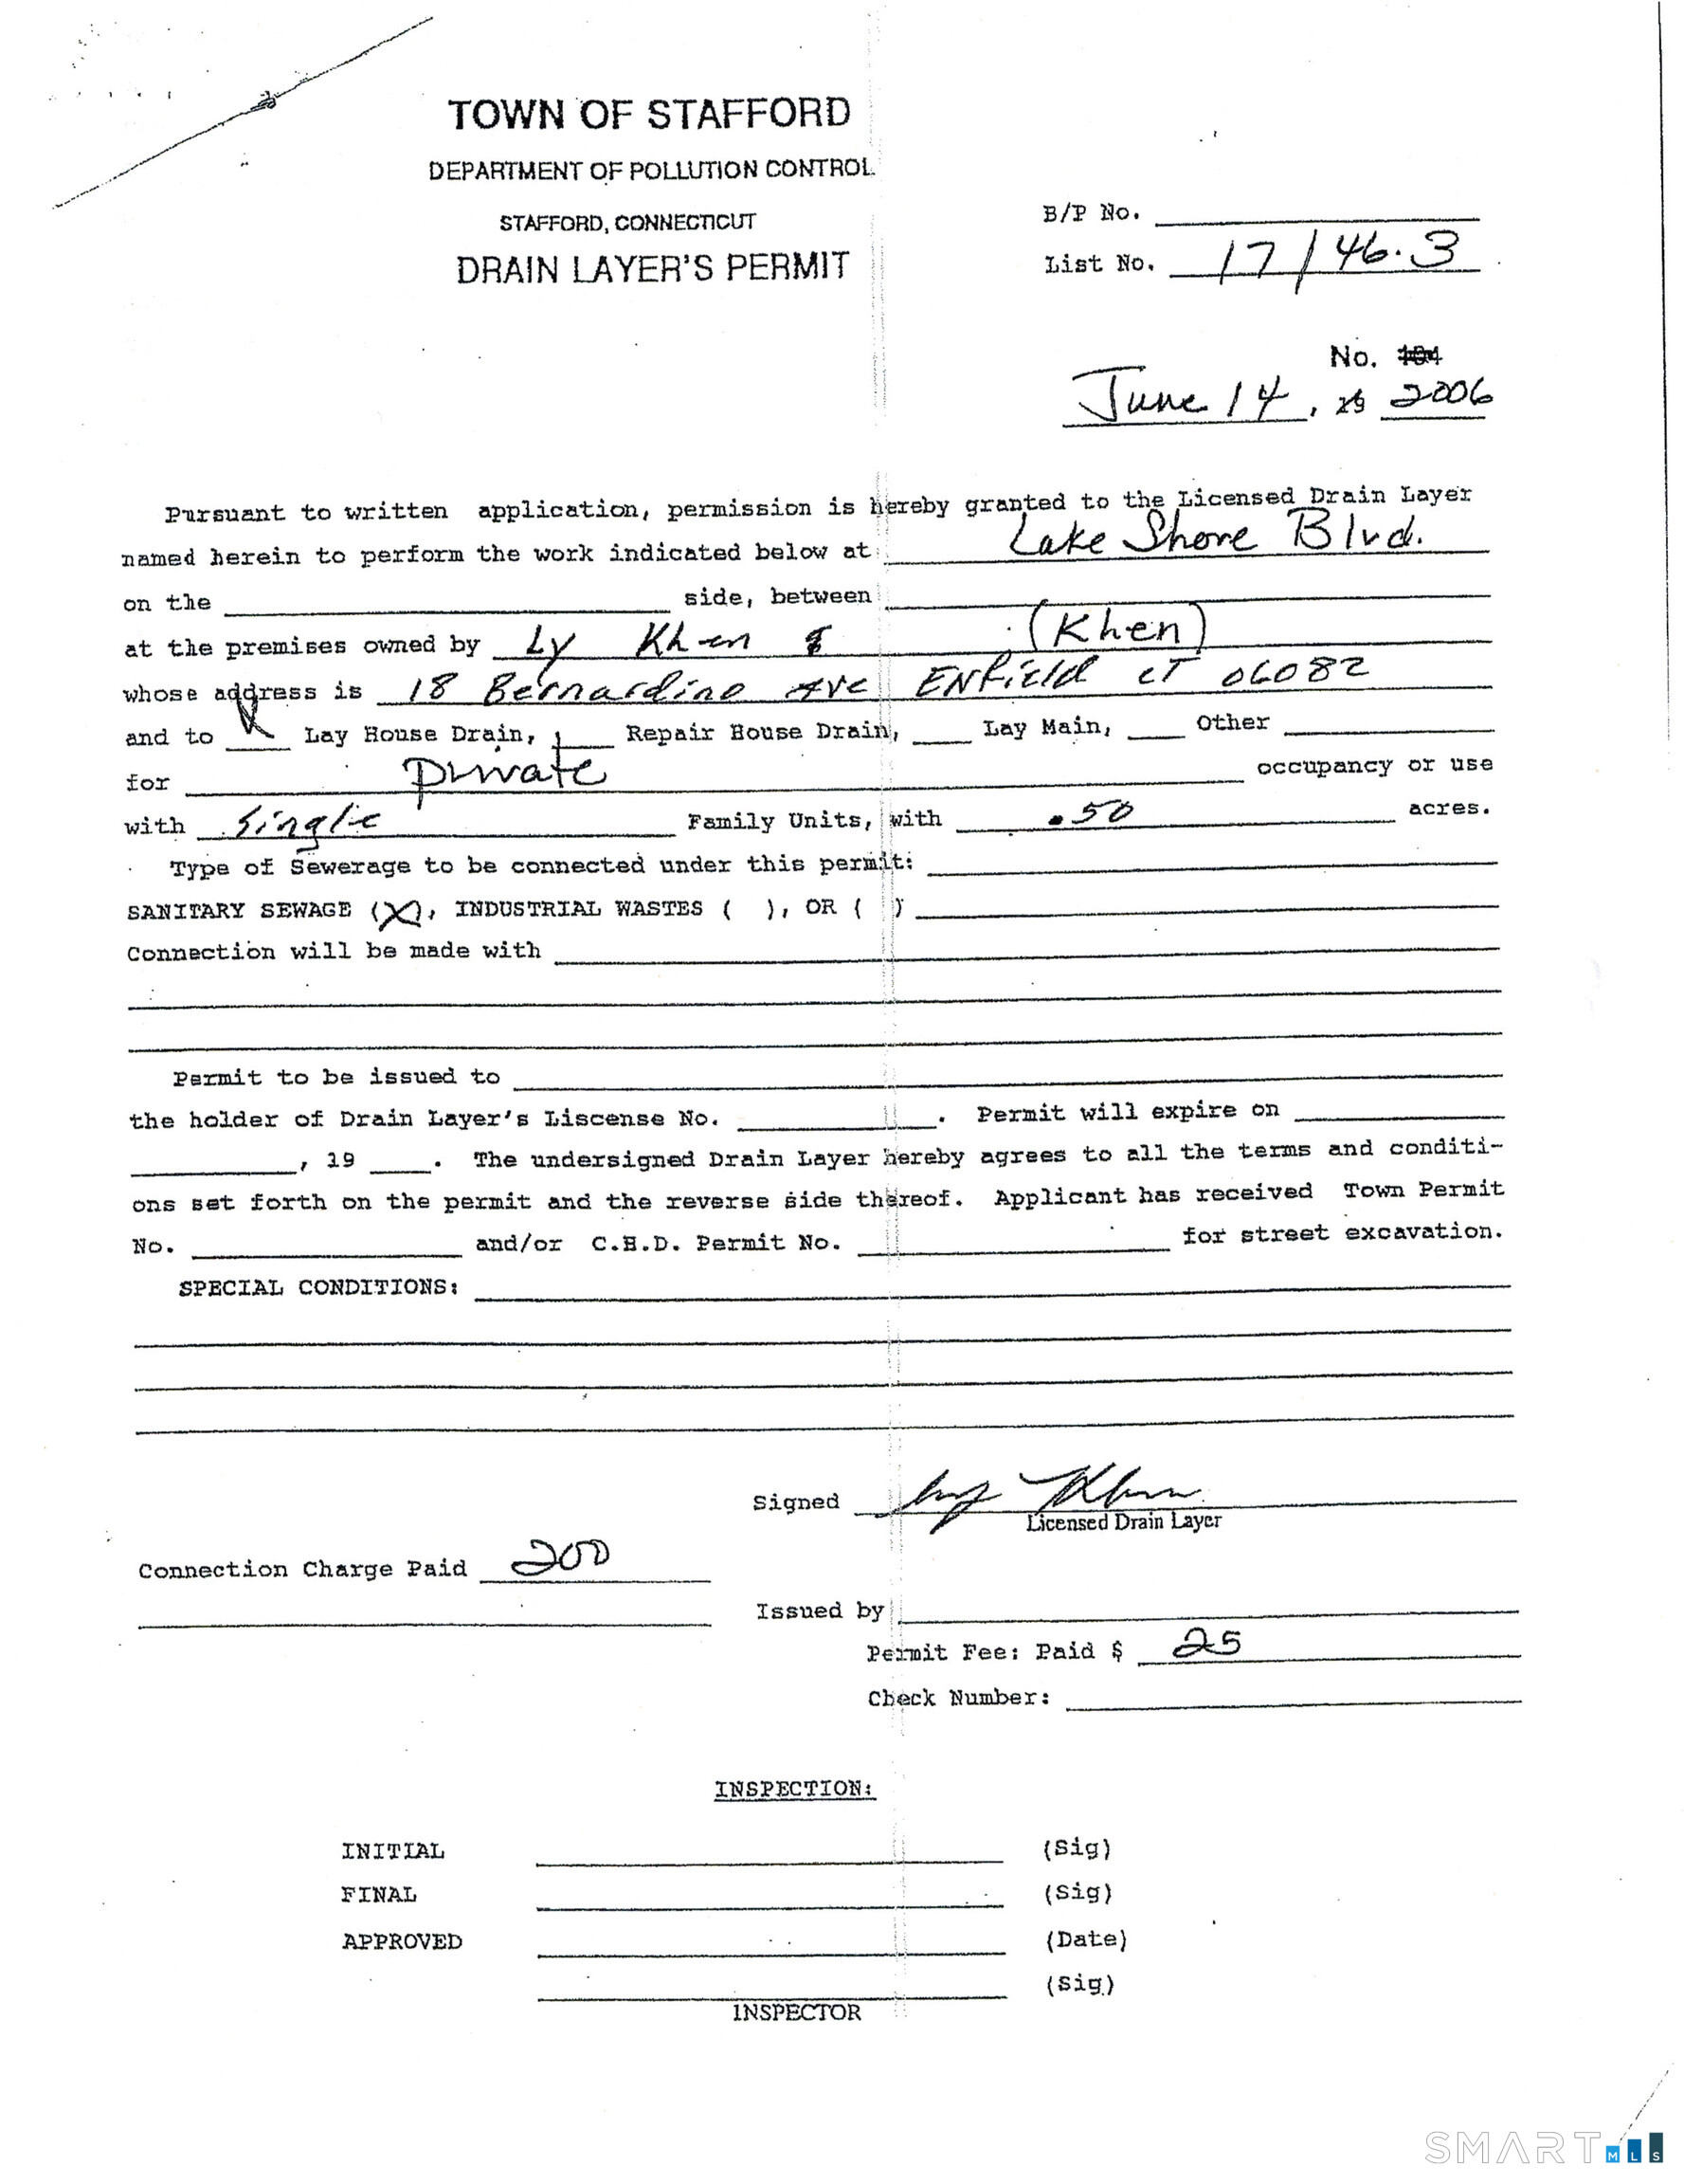 TOWN OF STAFFORD
DEPARTMENT OF POLLUTION CONTROL
STAFFORD, CONNECTICUT
DRAIN LAYER'S PERMIT
B/P No.
List No. 17/46.3
No.
June 14, 19 2006
Pursuant to written application, permission is hereby granted to the Licensed Drain Layer
named herein to perform the work indicated below at Lake Shore Blvd.
on the side, between
at the premises owned by Ly Khen & (Khen)
whose address is 18 Bernardino Ave ENField CT 06082
and to Lay House Drain, Repair House Drain, Lay Main, Other
for private occupancy or use
with Single Family Units, with .50 acres.
Type of Sewerage to be connected under this permit:
SANITARY SEWAGE (X), INDUSTRIAL WASTES ( ), OR ( )
Connection will be made with
Permit to be issued to
the holder of Drain Layer's Liscense No. . Permit will expire on
, 19 . The undersigned Drain Layer hereby agrees to all the terms and conditi-
ons set forth on the permit and the reverse side thereof. Applicant has received Town Permit
No. and/or C.H.D. Permit No. for street excavation.
SPECIAL CONDITIONS:
Signed Ly Khen
Licensed Drain Layer
Connection Charge Paid 200
Issued by
Permit Fee: Paid $ 25
Check Number:
INSPECTION:
INITIAL (Sig)
FINAL (Sig)
APPROVED (Date)
(Sig)
INSPECTOR
SMART MLS